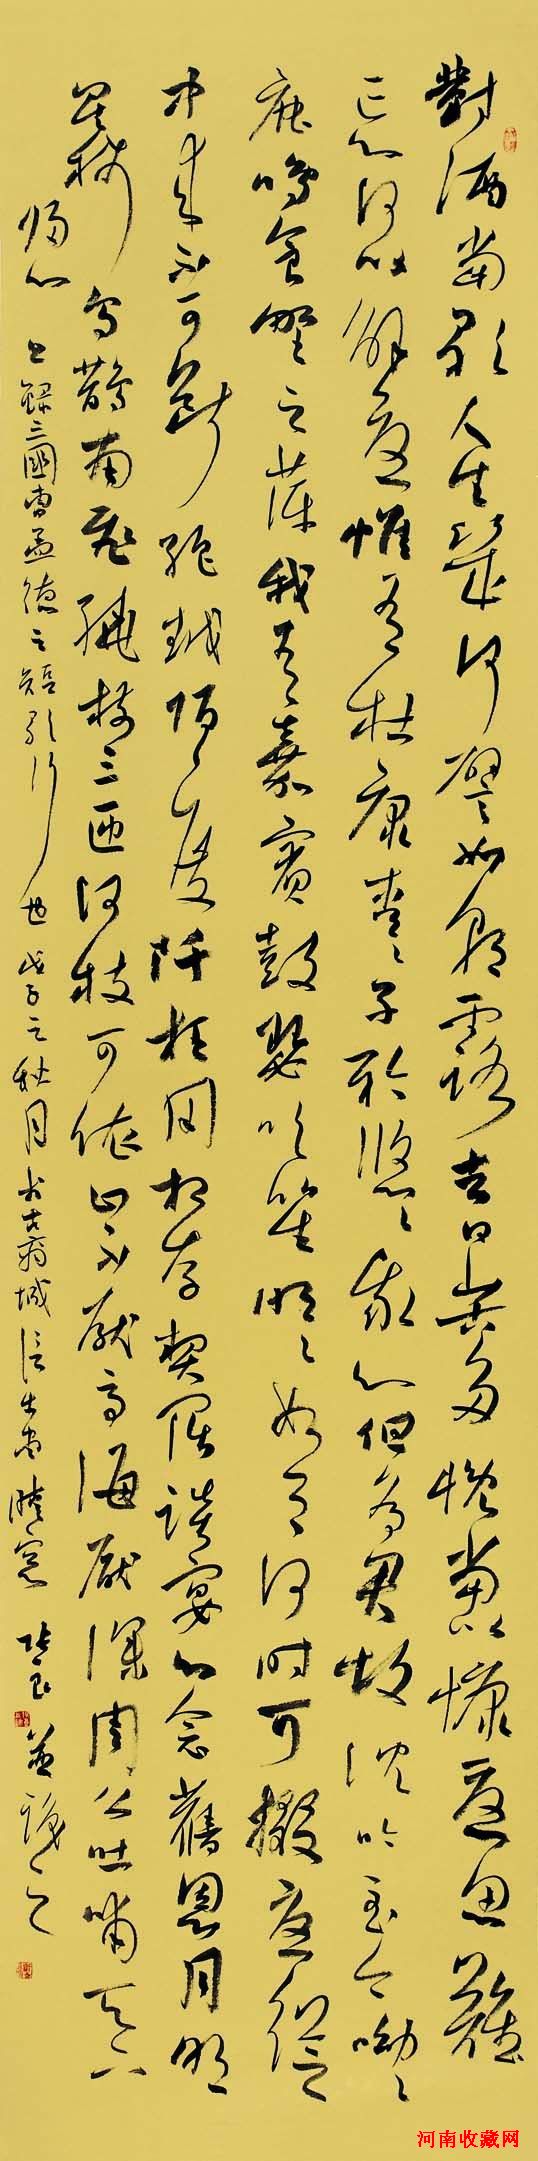 對酒當歌人生幾何譬如朝露去日苦多慨當以慷憂思難
忘何以解憂惟有杜康青〻子衿悠〻我心但為君故沈吟至今呦〻
鹿鳴食野之萍我有嘉賓鼓瑟吹笙明〻如月何時可掇憂從
中來不可斷絕越陌度阡枉用相存契闊談宴心念舊恩月明
星稀烏鵲南飛繞樹三匝何枝可依山不厭高海厭深周公吐哺天下
歸心 上錄三國曹孟德之短歌行也戊子之秋月於古城
河南收藏网